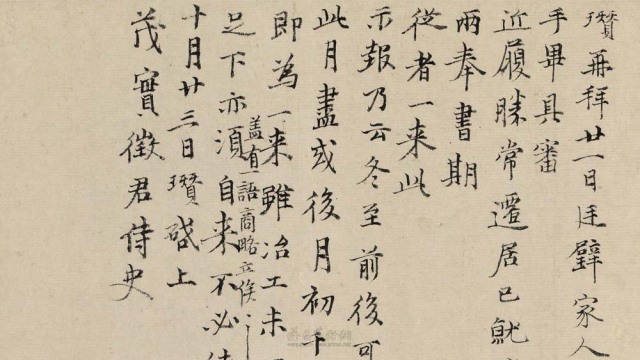 瓚再拜廿一日廷璧家人
手畢具審
近履勝常遷居已就
兩奉書期
從者一来此
示報乃云冬至前後可
此月盡或後月初千
即為一来雖治工未
盖有一語商略立俟
足下亦須自来不必
十月廿三日瓚啓上
茂實徵君侍史